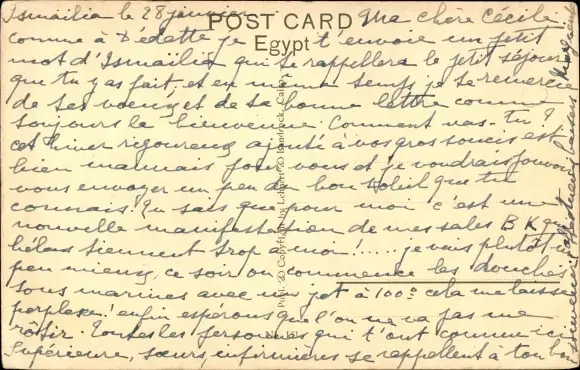 POST CARD
Egypt
Ismaïlia le 28 janvier Ma chère Cécile,
comme à Dédette je t'envoie un petit
mot d'Ismaïlia qui se rappellera le petit séjour
que tu y as fait, et en même temps je te remercie
de tes voeux et de ta bonne lettre comme
toujours la bienvenue. Comment vas-tu ?
cet hiver rigoureux ajouté à vos gros soucis est
bien mauvais pour vous et je voudrais pouvoir
vous envoyer un peu de bon soleil que tu
connais. Tu sais que pour moi c'est une
nouvelle manifestation de mes sales B K qui
hélas tiennent trop à moi !.... je vais plutôt un
peu mieux, ce soir on commence les douches
sous marines avec un jet à 100° cela me laisse
perplexe. enfin espérons que l'on ne va pas me
rôtir. Toutes les personnes qui t'ont connue ici
Supérieure, soeurs, infirmières se rappellent à ton bon
souvenir